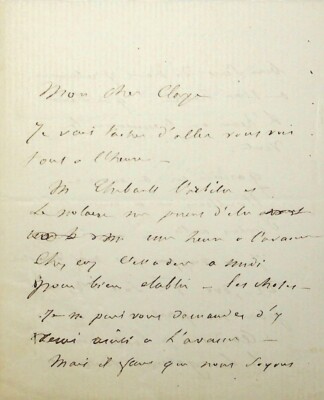 Mon cher Claye
Je vais tacher d'aller vous voir
tout a l'heure —
M Thibault l'arbitre et
Le notaire me prient d'etre
une heure a l'avance
chez eux c'est a dire a midi
pour bien etablir — les choses —
Je ne puis vous demander d'y
venir aussi a l'avance —
Mais il faut que nous soyons